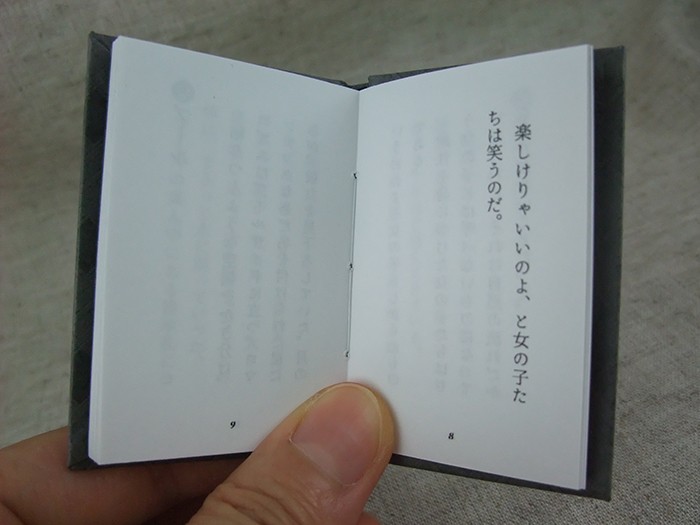 楽しけりゃいいのよ、と女の子た
ちは笑うのだ。
8
9